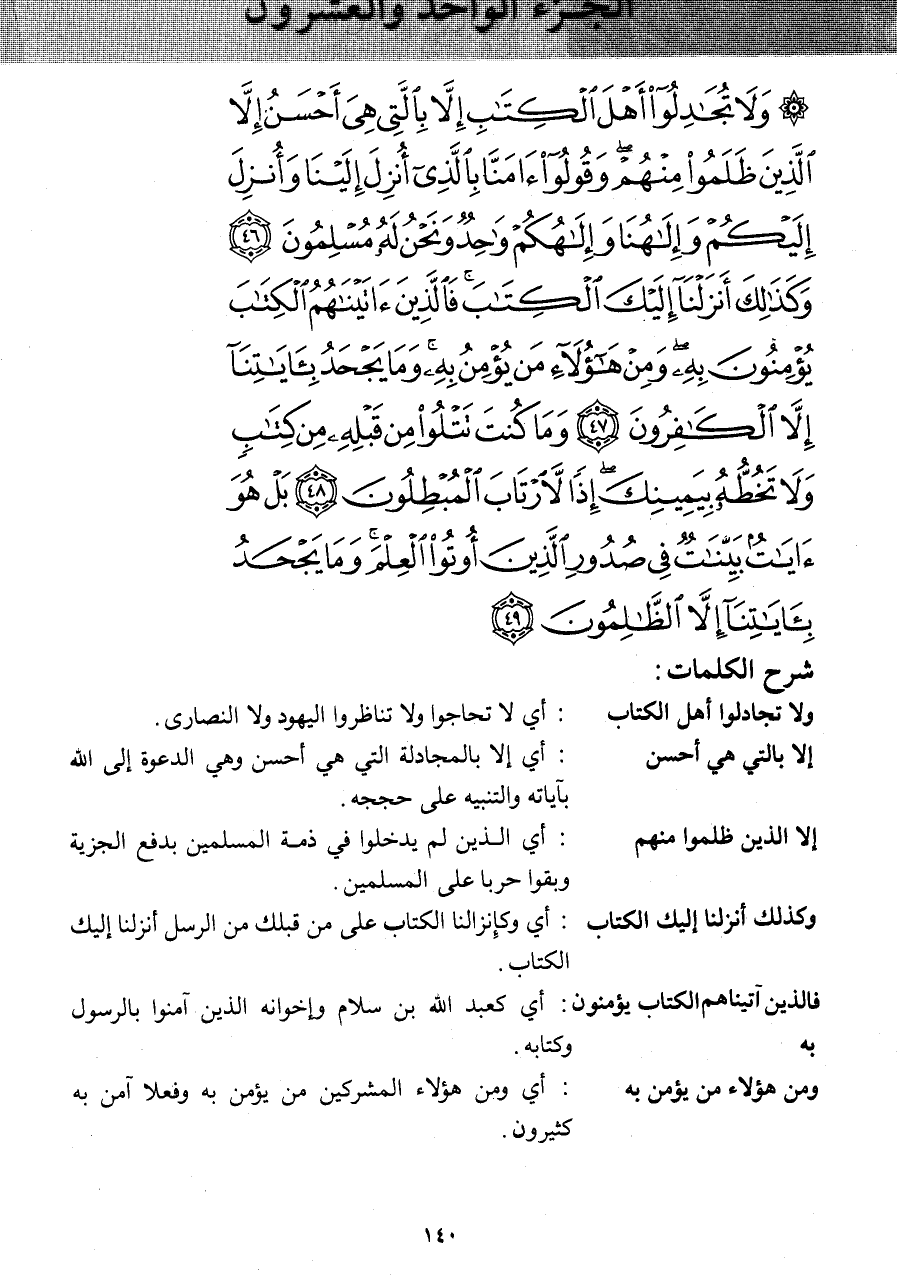 الجزء الواحد والعشرون
۞ وَلَا تُجَٰدِلُوٓا۟ أَهْلَ ٱلْكِتَٰبِ إِلَّا بِٱلَّتِى هِىَ أَحْسَنُ إِلَّا
ٱلَّذِينَ ظَلَمُوا۟ مِنْهُمْ ۖ وَقُولُوٓا۟ ءَامَنَّا بِٱلَّذِىٓ أُنزِلَ إِلَيْنَا وَأُنزِلَ
إِلَيْكُمْ وَإِلَٰهُنَا وَإِلَٰهُكُمْ وَٰحِدٌ وَنَحْنُ لَهُۥ مُسْلِمُونَ ٤٦
وَكَذَٰلِكَ أَنزَلْنَآ إِلَيْكَ ٱلْكِتَٰبَ ۚ فَٱلَّذِينَ ءَاتَيْنَٰهُمُ ٱلْكِتَٰبَ
يُؤْمِنُونَ بِهِۦ ۖ وَمِنْ هَٰٓؤُلَآءِ مَن يُؤْمِنُ بِهِۦ ۚ وَمَا يَجْحَدُ بِـَٔايَٰتِنَآ
إِلَّا ٱلْكَٰفِرُونَ ٤٧ وَمَا كُنتَ تَتْلُوا۟ مِن قَبْلِهِۦ مِن كِتَٰبٍ
وَلَا تَخُطُّهُۥ بِيَمِينِكَ ۖ إِذًا لَّٱرْتَابَ ٱلْمُبْطِلُونَ ٤٨ بَلْ هُوَ
ءَايَٰتٌۢ بَيِّنَٰتٌ فِى صُدُورِ ٱلَّذِينَ أُوتُوا۟ ٱلْعِلْمَ ۚ وَمَا يَجْحَدُ
بِـَٔايَٰتِنَآ إِلَّا ٱلظَّٰلِمُونَ ٤٩
شرح الكلمات :
ولا تجادلوا أهل الكتاب : أي لا تحاجوا ولا تناظروا اليهود ولا النصارى .
إلا بالتي هي أحسن : أي إلا بالمجادلة التي هي أحسن وهي الدعوة إلى الله
بآياته والتنبيه على حججه .
إلا الذين ظلموا منهم : أي الـذين لم يدخلوا في ذمـة المسلمين بدفع الجزية
وبقوا حربا على المسلمين .
وكذلك أنزلنا إليك الكتاب : أي وكإنزالنا الكتاب على من قبلك من الرسل أنزلنا إليك
الكتاب .
فالذين آتيناهم الكتاب يؤمنون : أي كعبد الله بن سلام وإخوانه الذين آمنوا بالرسول
به وكتابه .
ومن هؤلاء من يؤمن به : أي ومن هؤلاء المشركين من يؤمن به وفعلا آمن به
كثيرون .
١٤٠